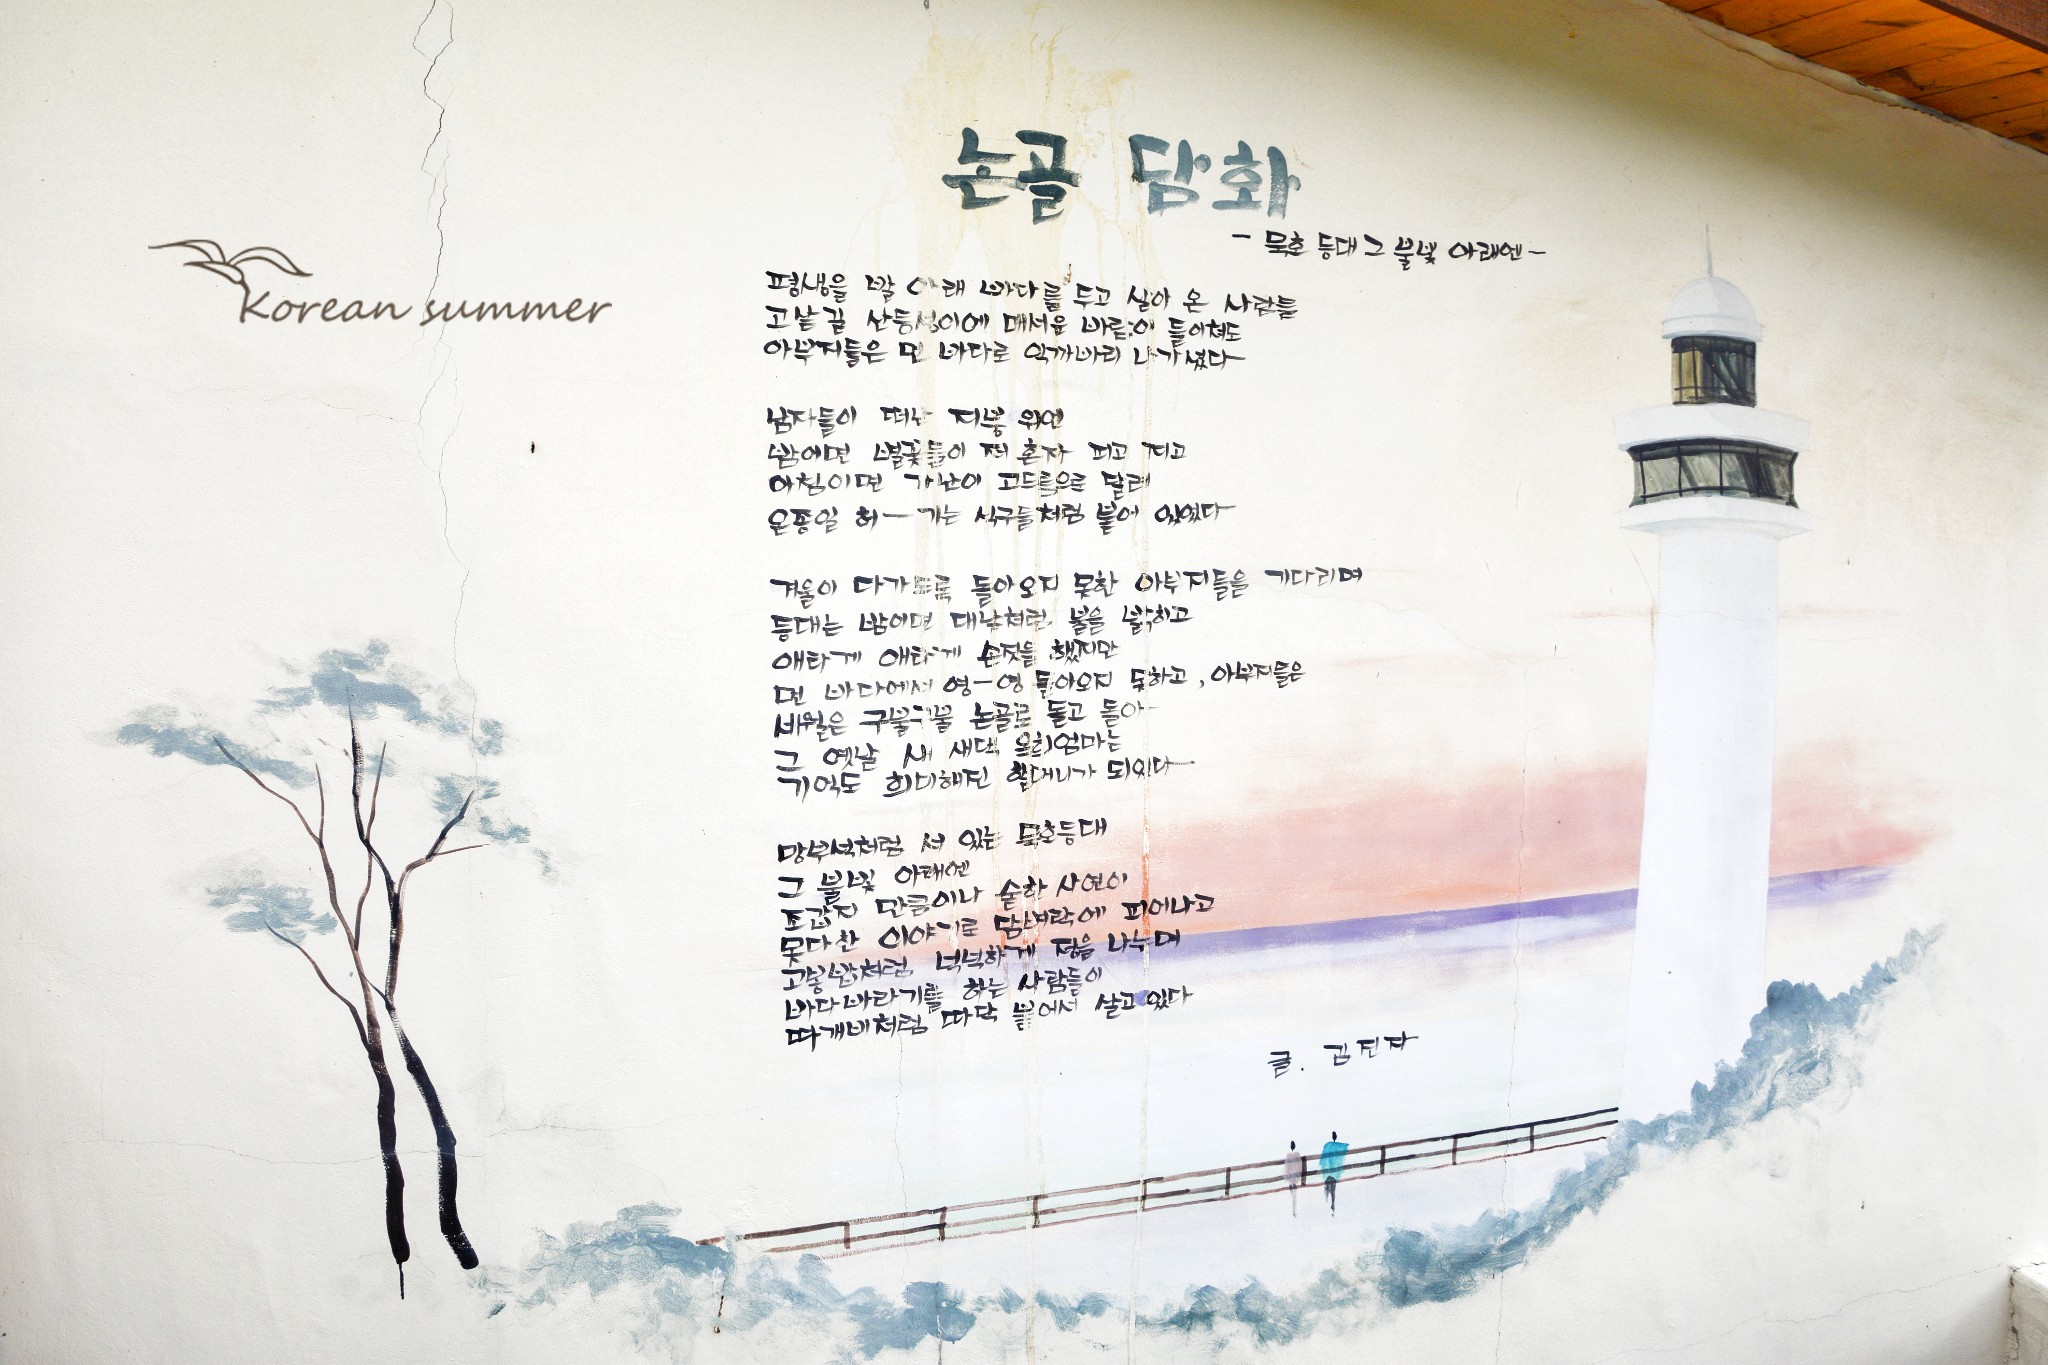 Korean summer
논골 담화
- 묵호 등대 그 불빛 아래엔 -
평생을 발 아래 바다를 두고 살아 온 사람들
고샅길 산등성이에 매서운 바람이 들이쳐도
아부지들은 먼 바다로 악까바리 나가셨다
남자들이 떠난 지붕 위엔
밤이면 별꽃들이 저 혼자 피고 지고
아침이면 가난이 고드름으로 달려
온종일 허一기는 식구들처럼 붙어 있었다
겨울이 다가도록 돌아오지 못한 아부지들을 기다리며
등대는 밤이면 대낮처럼 불을 밝히고
애타게 애타게 손짓을 했지만
먼 바다에서 영-영 돌아오지 못하고, 아부지들은
세월은 구불구불 논골로 돌고 돌아
그 옛날 새 새댁 엄마는
기억도 희미해진 할머니가 되었다
망부석처럼 서 있는 묵호등대
그 불빛 아래엔
조갑지 만큼이나 숱한 사연이
못다 한 이야기로 담벼락에 피어나고
고봉밥처럼 넉넉하게 정을 나누며
바다바라기를 하는 사람들이
따개비처럼 따닥 붙어서 살고 있다
글. 김진자